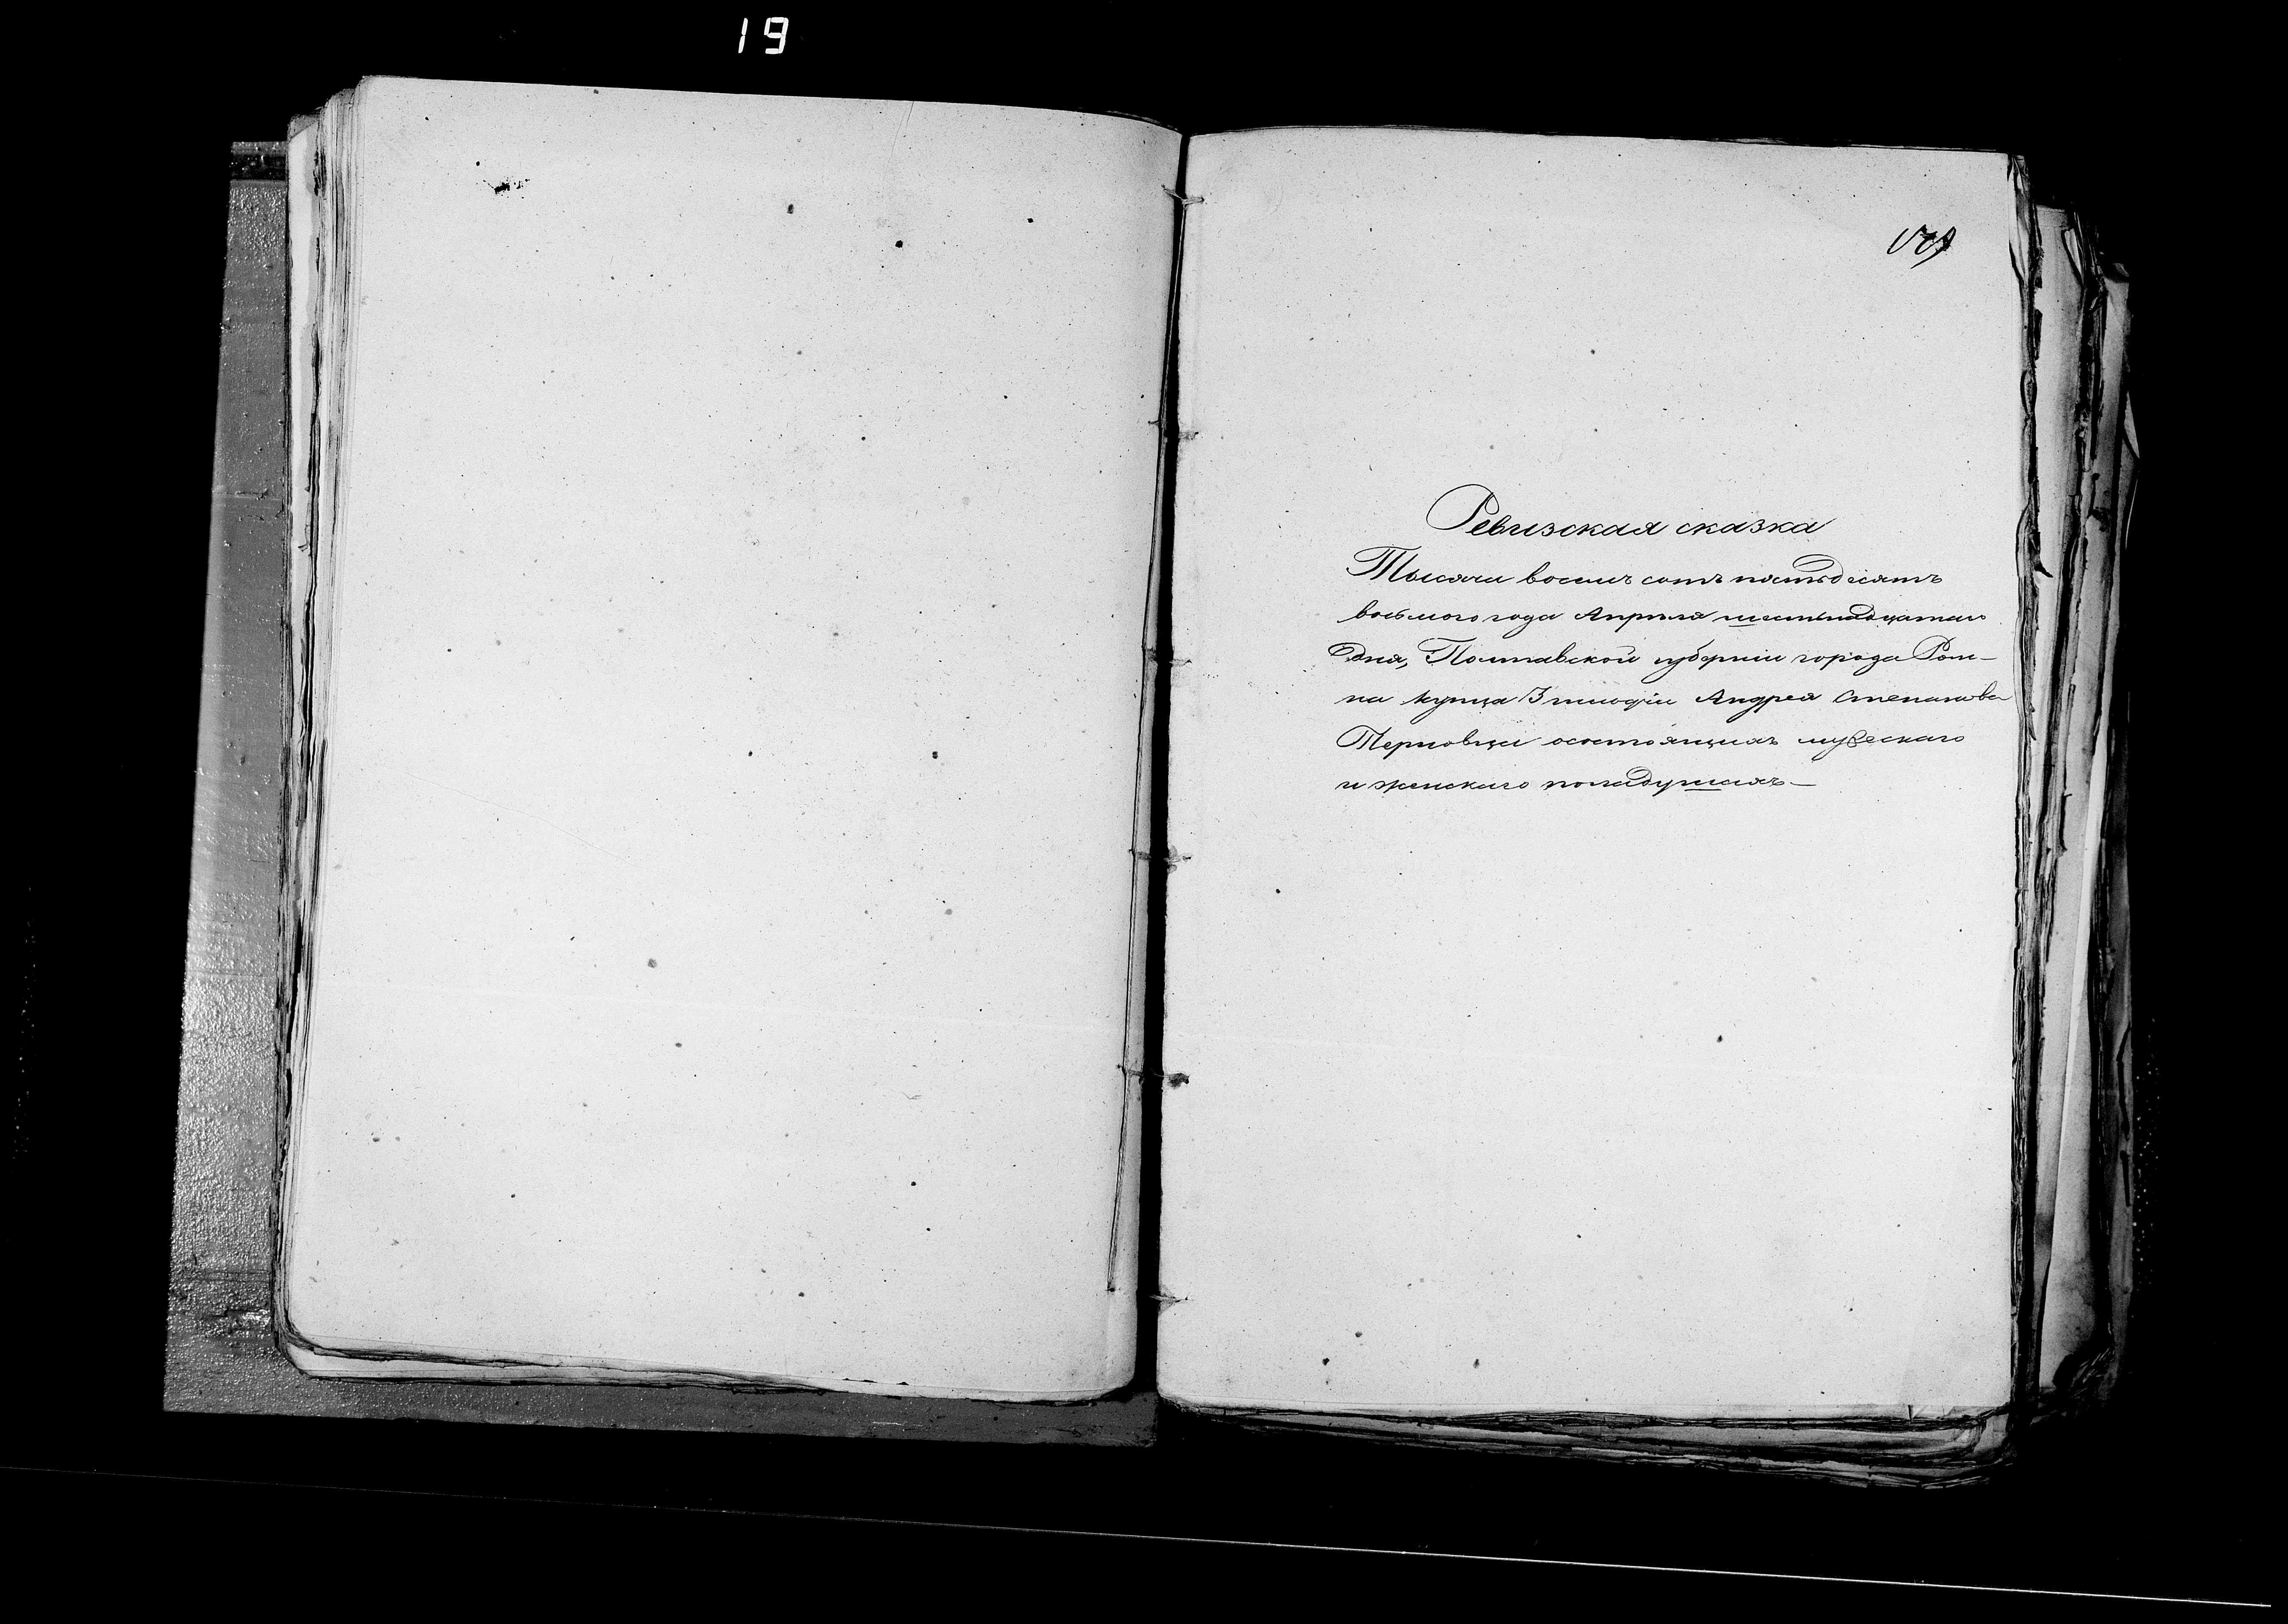 19
Ревизская сказка
Тысяча восемь сотъ пятьдесятъ
восьмого года Апрѣля шестьнадцатаго
дня, Полтавской губерніи города Ром-
на купца 3 гильдіи Андрея Степанова
Терновца осостоящихъ мужескаго
и женскаго пола душахъ—